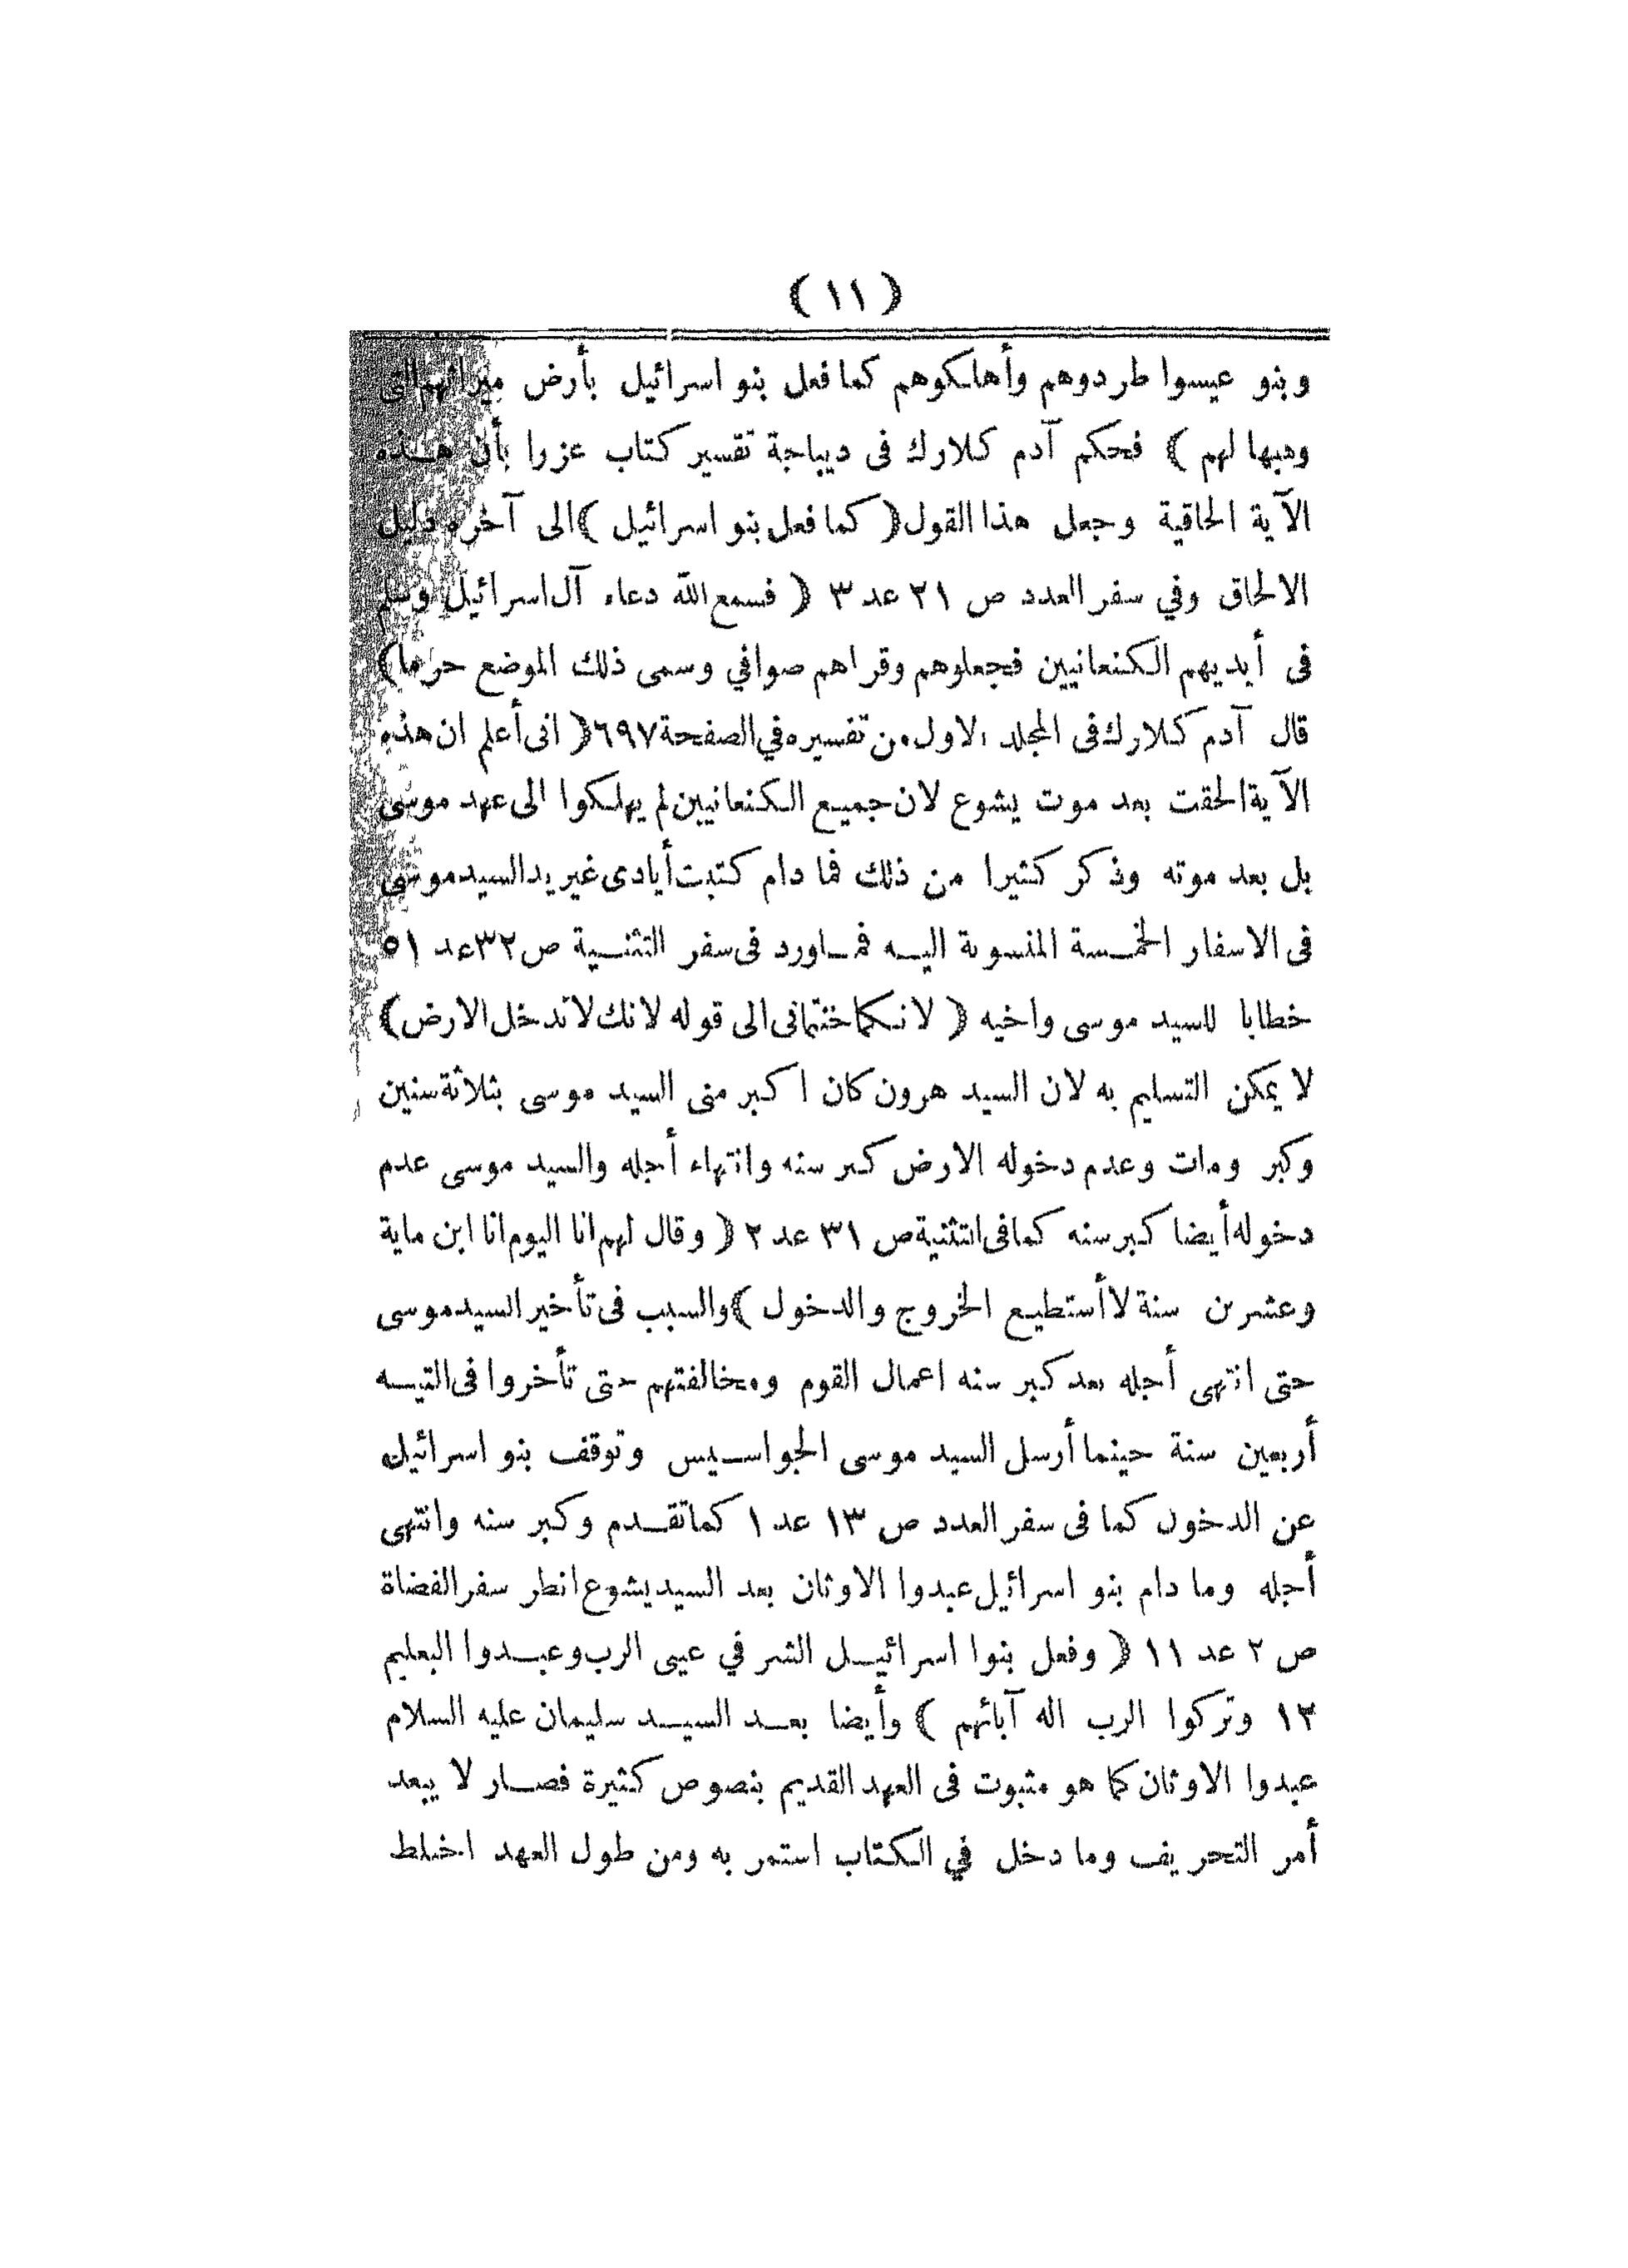 ( ١١ )
وبنو عيسوا طردوهم وأهلكوهم كما فعل بنو اسرائيل بأرض ميراثهم التى
وهبها لهم ) فحكم آدم كلارك فى ديباجة تفسير كتاب عزرا بأن هذه
الآية الحاقية وجعل هذا القول ( كما فعل بنو اسرائيل ) الى آخره دليل
الالحاق وفي سفر العدد ص ٢١ عد ٣ ( فسمع الله دعاء آل اسرائيل وسلم
فى أيديهم الكنعانيين فجعلوهم وقراهم صوافي وسمى ذلك الموضع حرما )
قال آدم كلارك فى المجلد الاول من تفسيره في الصفحة ٦٩٧ ( انى أعلم ان هذه
الآية الحقت بعد موت يشوع لان جميع الكنعانيين لم يهلكوا الى عهد موسى
بل بعد موته وذكر كثيرا من ذلك فما دام كتبت أيادى غير يد السيد موسى
فى الاسفار الخمسة المنسوبة اليه فما ورد فى سفر التثنية ص ٣٢ عد ٥١
خطابا للسيد موسى واخيه ( لانكما خنتمانى الى قوله لانك لا تدخل الارض )
لا يمكن التسليم به لان السيد هرون كان اكبر منى السيد موسى بثلاثة سنين
وكبر ومات وعدم دخوله الارض كبر سنه وانتهاء أجله والسيد موسى عدم
دخوله أيضا كبر سنه كما فى التثنية ص ٣١ عد ٢ ( وقال لهم انا اليوم انا ابن ماية
وعشرين سنة لا أستطيع الخروج والدخول ) والسبب فى تأخير السيد موسى
حتى انتهى أجله بعد كبر سنه اعمال القوم ومخالفتهم حتى تأخروا فى التيه
أربعين سنة حينما أرسل السيد موسى الجواسيس وتوقف بنو اسرائيل
عن الدخول كما فى سفر العدد ص ١٣ عد ١ كما تقدم وكبر سنه وانتهى
أجله وما دام بنو اسرائيل عبدوا الاوثان بعد السيد يشوع انظر سفر القضاة
ص ٢ عد ١١ ( وفعل بنوا اسرائيل الشر في عينى الرب وعبدوا البعليم
١٢ وتركوا الرب اله آبائهم ) وأيضا بعد السيد سليمان عليه السلام
عبدوا الاوثان كما هو مثبوت فى العهد القديم بنصوص كثيرة فصار لا يبعد
أمر التحريف وما دخل في الكتاب استمر به ومن طول العهد اختلط